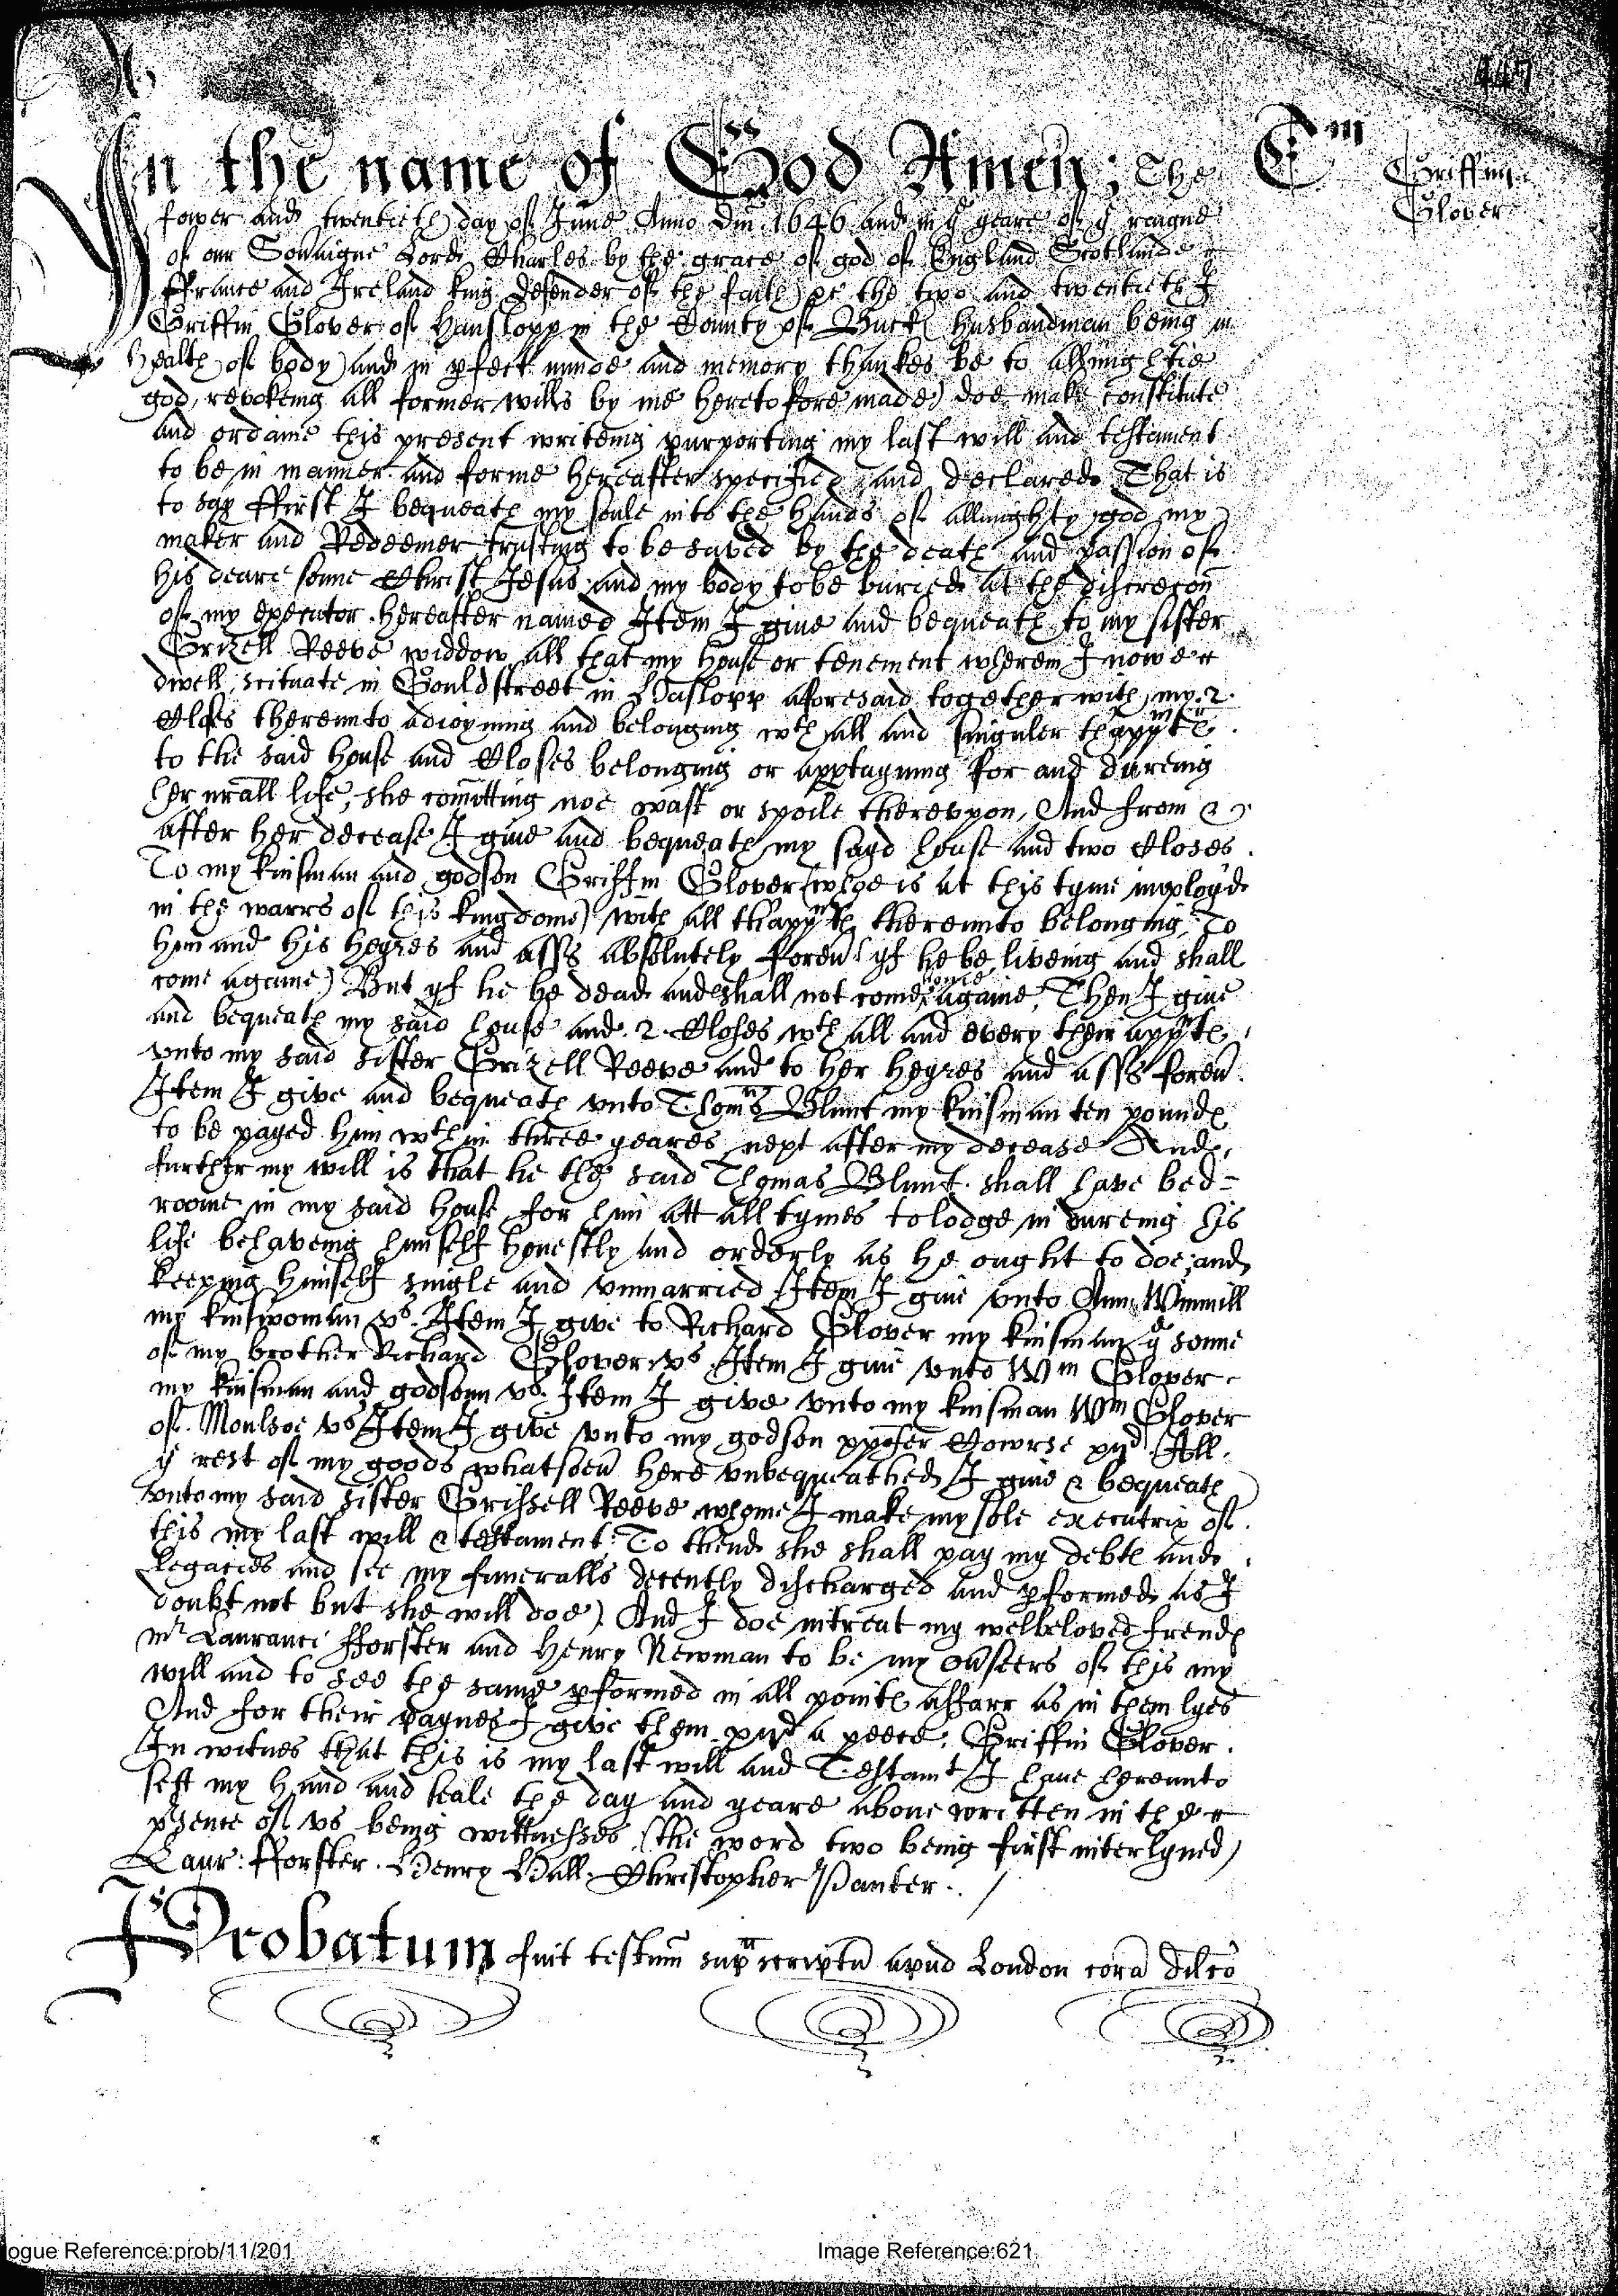 447
In the name of God Amen; The
Tm Griffini Glover
fower and twentieth day of June Anno Dni 1646 and in ye yeare of ye raigne
of our Soveraigne Lord Charles by the grace of god of England Scotlande
Ffrance and Ireland king Defender of the faith &c the two and twentieth I
Griffin Glover of Hanslopp in the County of Buck Husbandman being in
health of body and in pfect minde and memory thankes be to allmightie
god, revokeing all former wills by me heretofore made doe make constitute
and ordaine this present writeing purporting my last will and testament
to be in manner and forme hereafter specified and declared That is
to say Ffirst I bequeath my soule into the hands of allmighty god my
maker and Redeemer trusting to be saved by the death and passion of
his deare sonne Christ Jesus and my body to be buried at the discrecon
of my executor hereafter named Item I give and bequeath to my sister
Grizell Reeve widdow all that my house or tenement wherein I nowe
dwell scituate in Gouldstreet in Haslopp aforesaid together with my 2
Closes thereunto adioyning and belonging wth all and singuler thapptn
to the said house and Closes belonging or apptayning for and dureing
her nrall life, she comitting noe wast or spoile therevpon, And from &
after her decease I give and bequeath my sayd house and two Closes
To my kinsman and godson Griffin Glover (whoe is at this tyme imployd
in the warrs of this kingdome) with all thapptn thereunto belonging To
him and his heyres and asss absolutely forev (yf he be liveing and shall
come againe) But yf he be dead and shall not come home againe, Then I give
and bequeath my said house and 2 Closes wth all and every their apptn
vnto my said sister Grizell Reeve and to her heyres and asss forev
Item I give and bequeath vnto Thoms Blunt my kinsman ten pounds
to be payed him wthin three yeares next after my decease And
further my will is that he the said Thomas Blunt shall have bed=
roome in my said house for him att all tymes to lodge in dureing his
life behaveing himself honestly and orderly as he ought to doe, and
keeping himself single and vnmarried Item I give vnto Ann Winmill
my kinswoman vs. Item I give to Richard Glover my kinsman ye sonne
of my brother Richard Glover vs Item I give vnto Wm Glover
my kinsman and godsonn vs. Item I give vnto my kinsman Wm Glover
of Moulsoe vs Item I give vnto my godson Cowrse All
ye rest of my goods whatsoev here vnbequeathed I give & bequeath
vnto my said sister Grissell Reeve whome I make my sole executrix of
this my last will & testament To thend she shall pay my debts and
legacies and see my funeralls decently discharged and pformed as I
doubt not but she will doe) And I doe intreat my welbeloved frends
mr Laurance Fforster and Henry Newman to be my ovseers of this my
will and to see the same pformed in all points asfarr as in them lyes
And for their paynes I give them a peece. Griffin Glover.
In witnes that this is my last will and Testamt I have hereunto
sett my hand and seale the day and yeare above written in the
psence of vs being wittnesses (the word two being first interlyned)
Laur: Fforster. Henry Hall. Christopher Panter.
Probatum fuit testum suprascriptu apud London cora dilco
ogue Reference:prob/11/201
Image Reference:621